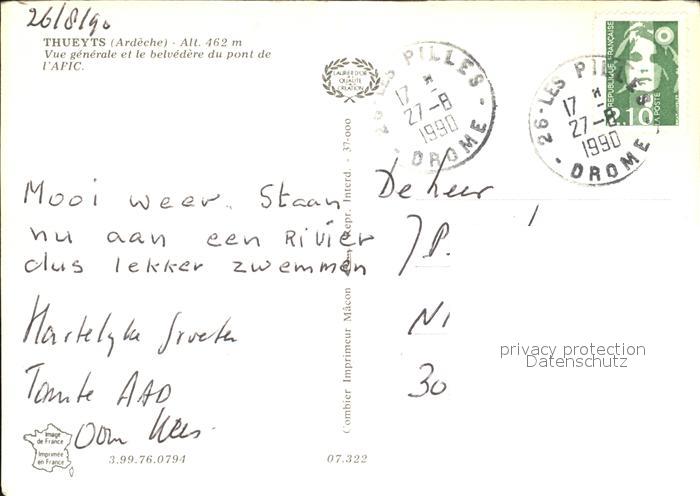 26/8/90
THUEYTS (Ardèche) - Alt. 462 m
Vue générale et le belvédère du pont de
l'AFIC.
LAURIER D'OR
DE LA
QUALITÉ
CRÉATION
26-LES PILLES
17 H
27-8
1990
- DROME -
26-LES PILL
17 H
27-8
1990
- DROME
REPUBLIQUE FRANÇAISE
LA POSTE
2,10
Mooi weer. Staan
nu aan een RIVIER
dus lekker zwemmen
Hartelyke groeten
Tante AAD
Oom Kees.
De heer
J P.
NI
30
Combier Imprimeur Mâcon Repr. Interd. - 37-000
privacy protection
Datenschutz
Image
de France
Imprimée
en France
3.99.76.0794
07.322